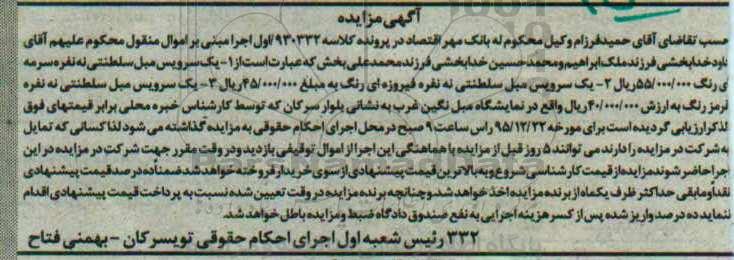 آگهی مزایده
حسب تقاضای آقای حمیدفرزام وکیل محکوم له بانک مهر اقتصاد در پرونده کلاسه ۹۳۰۳۳۲/اول اجرا مبنی بر اموال منقول محکوم علیهم آقای
داود خدابخشی فرزند ملک ابراهیم ومحمد حسین خدابخشی فرزند محمد علی بخش که عبارت است از ۱- یک سرویس مبل سلطنتی نه نفره سرمه
ای رنگ ۵۵/۰۰۰/۰۰۰ریال ۲- یک سرویس مبل سلطنتی نه نفره فیروزه ای رنگ به مبلغ ۴۵/۰۰۰/۰۰۰ریال ۳- یک سرویس مبل سلطنتی نه نفره
قرمز رنگ به ارزش ۴۰/۰۰۰/۰۰۰ریال واقع در نمایشگاه مبل نگین غرب به نشانی بلوار سرکان که توسط کارشناس خبره محلی برابر قیمتهای فوق
الذکر ارزیابی گردیده است برای مورخه ۹۵/۱۲/۲۲ راس ساعت ۹ صبح در محل اجرای احکام حقوقی به مزایده گذاشته می شود لذا کسانی که تمایل
به شرکت در مزایده را دارند می توانند ۵ روز قبل از مزایده با هماهنگی این اجرا از اموال توقیفی بازدید ودر وقت مقرر جهت شرکت در مزایده در این
اجرا حاضر شوند مزایده از قیمت کارشناسی شروع وبه بالاترین قیمت پیشنهادی از سوی خریدار فروخته خواهد شد ضمنا ده در صد قیمت پیشنهادی
نقدا ومابقی حداکثر ظرف یکماه از برنده مزایده اخذ خواهد شد وچنانچه برنده مزایده در وقت تعیین شده نسبت به پرداخت قیمت پیشنهادی اقدام
ننماید ده در صد واریز شده پس از کسر هزینه اجرایی به نفع صندوق دادگاه ضبط ومزایده باطل خواهد شد.
۳۳۲ رئیس شعبه اول اجرای احکام حقوقی تویسرکان - بهمنی فتاح